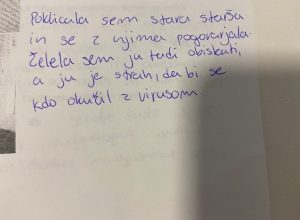 Poklicala sem stara starša
in se z njima pogovarjala.
Želela sem ju tudi obiskati,
a ju je strah, da bi se
kdo okužil z virusom.